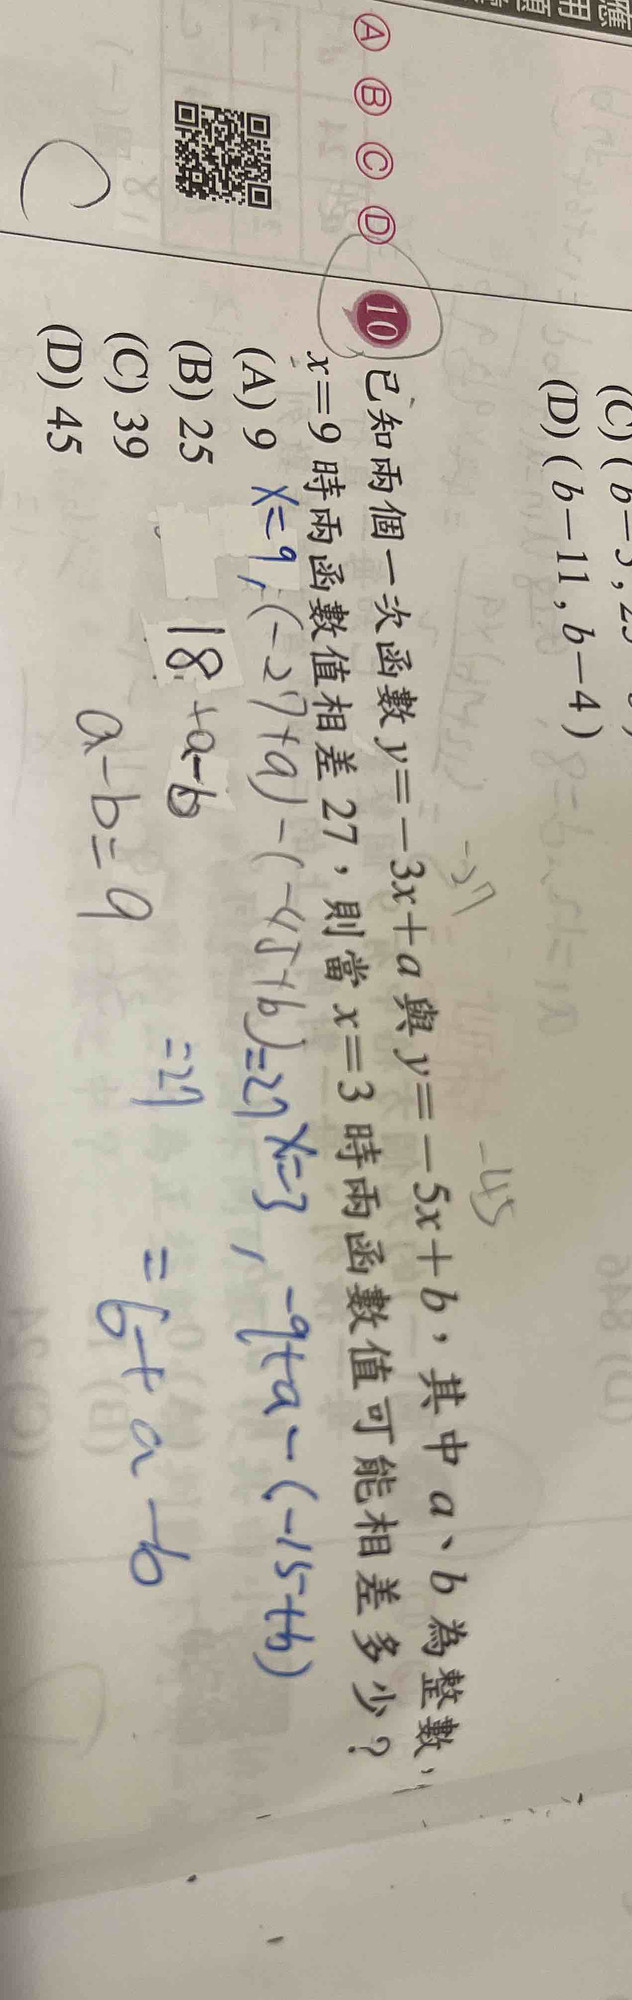 (D) (b－11 , b－4)
Ⓐ Ⓑ Ⓒ Ⓓ
10 已知兩個一次函數 y＝－3x＋a 與 y＝－5x＋b，其中 a、b 為整數，
x＝9 時兩函數值相差 27，則當 x＝3 時兩函數值可能相差多少？
(A) 9
(B) 25
(C) 39
(D) 45
C
-27
-45
x=9, (-27+a)-(-45+b)=27
18+a-b =27
a-b=9
x=3, -9+a-(-15+b)
=6+a-b